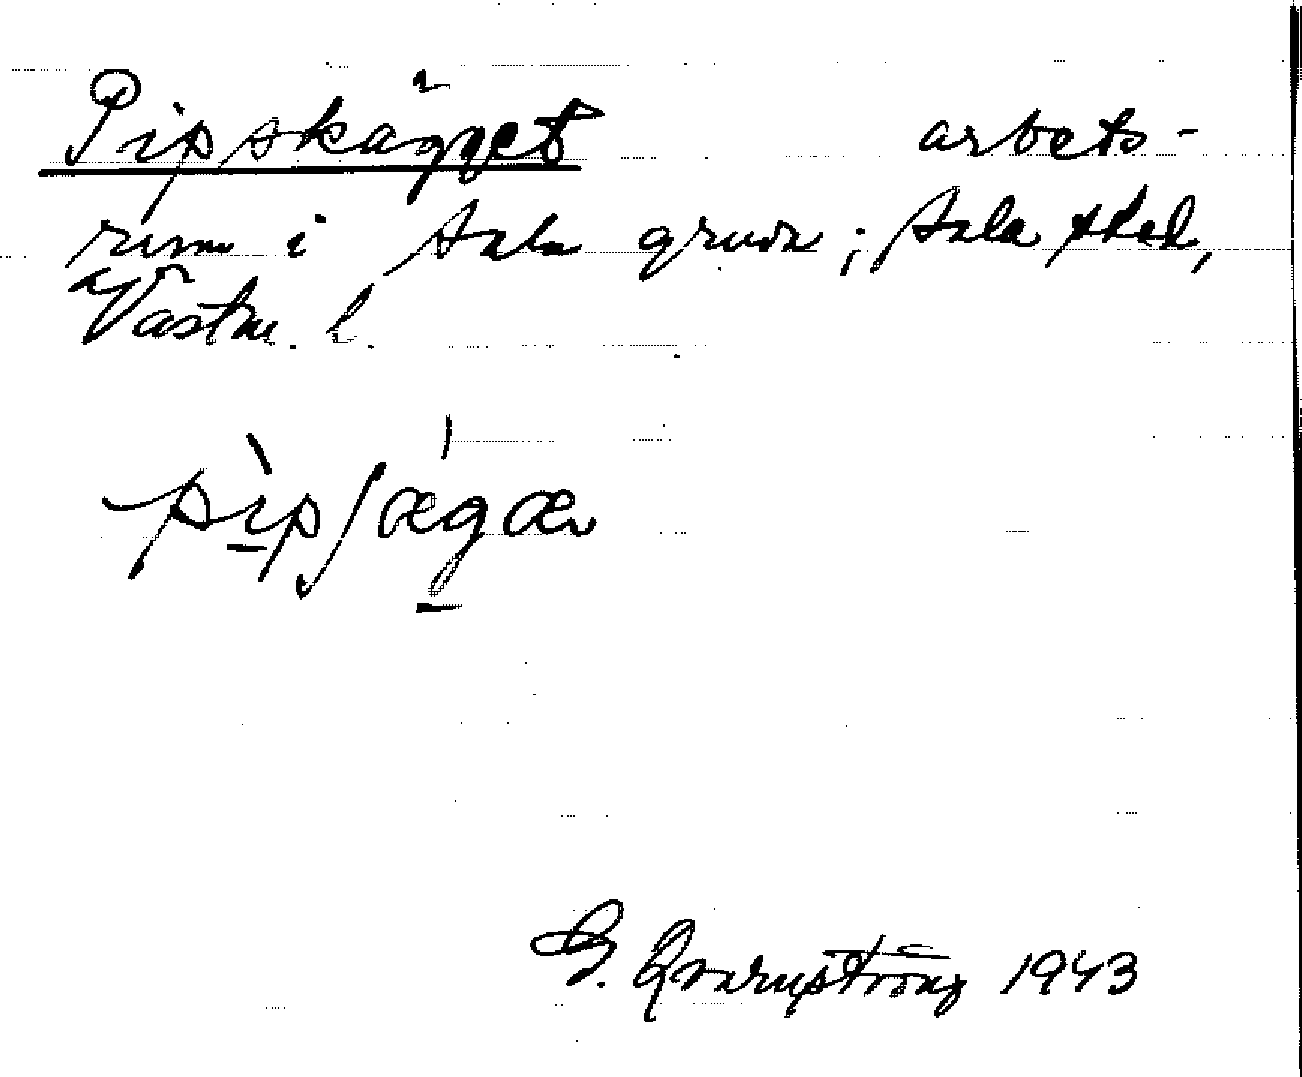 Pipskägget arbets-
rum i Sala gruva; Sala sted,
Västm. l.
pìpʃægæ
G. Qvarnström 1943